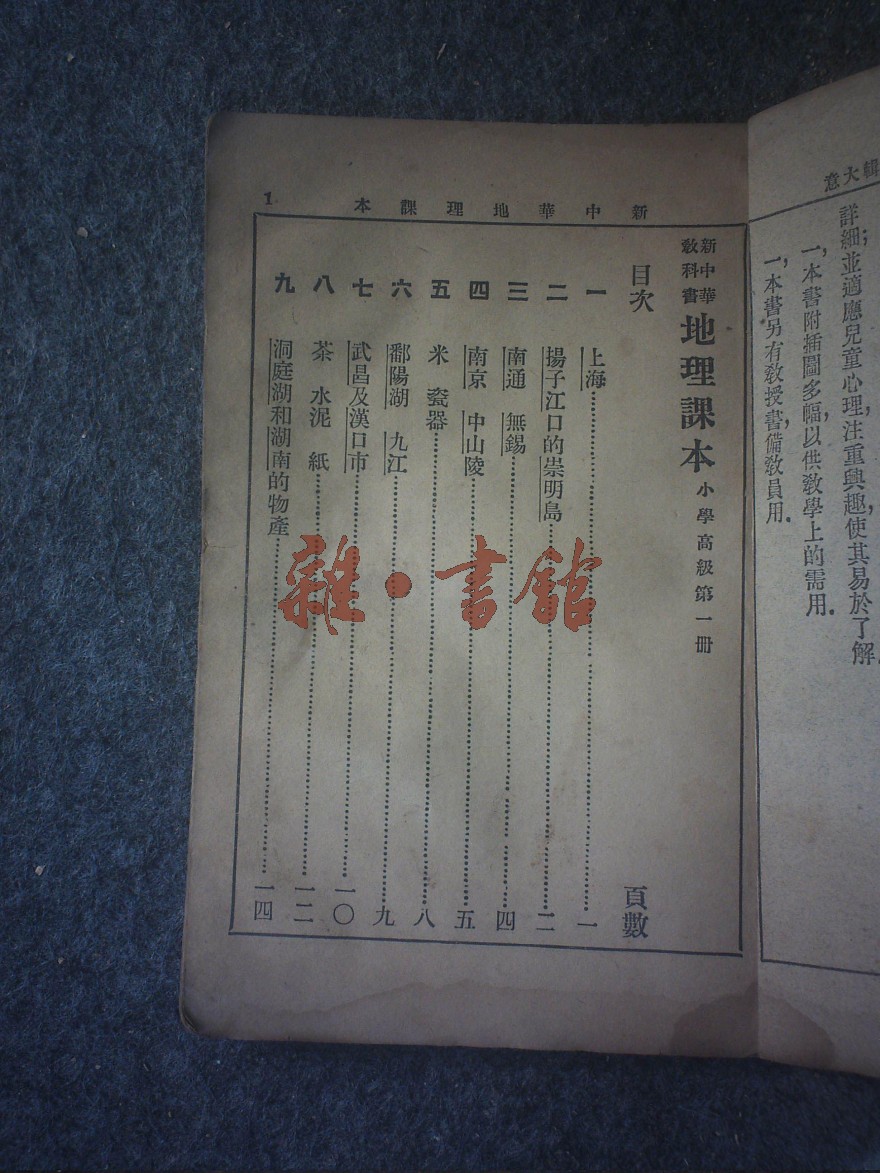 輯大意
詳細；並適應兒童心理，注重興趣，使其易於了解。
一，本書附插圖多幅，以供教學上的需用。
一，本書另有教授書，備教員用。
新中華地理課本
1
新中華
教科書
地理課本 小學高級第一冊
目次 頁數
一 上海 一
二 揚子江口的崇明島 二
三 南通 無錫 四
四 南京 中山陵 五
五 米 瓷器 八
六 鄱陽湖 九江 九
七 武昌及漢口市 一〇
八 茶 水泥 紙 一二
九 洞庭湖和湖南的物產 一四
雜·書館